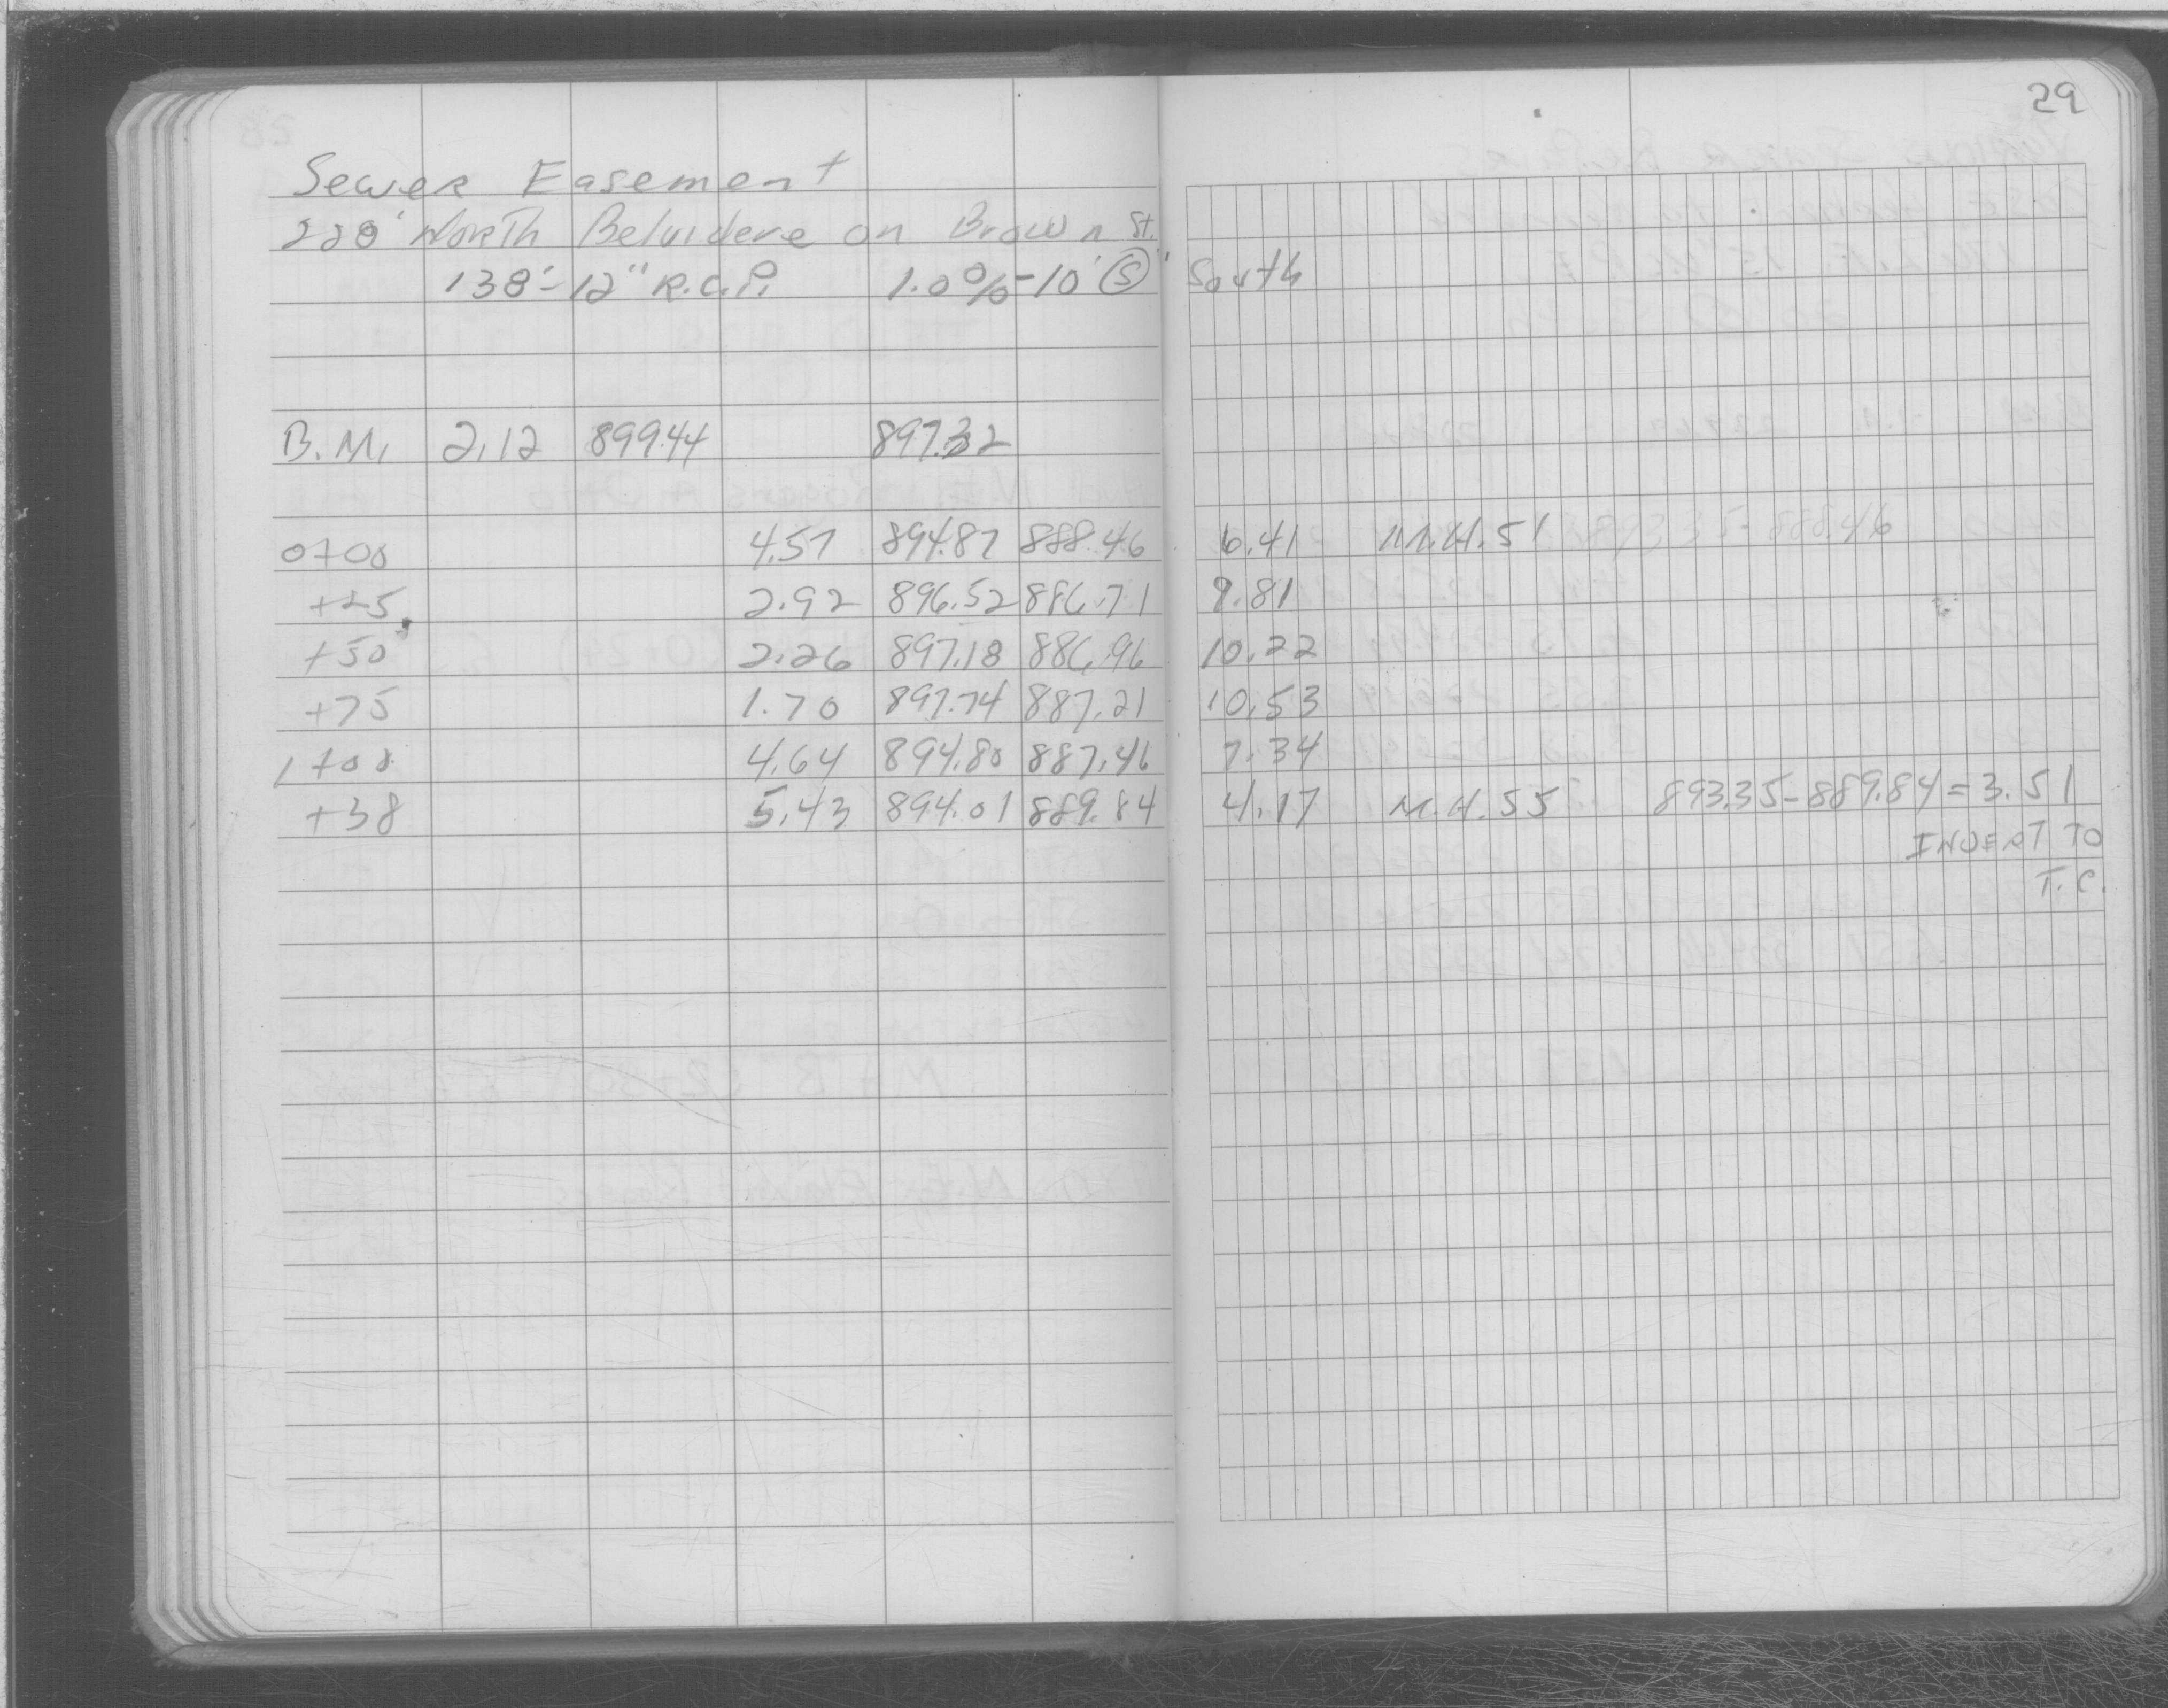 29
Sewer Easement
228' North Belvidere on Brown St.
138'-12" R.C.P. 1.0%-10' Ⓢ South
B.M. 2.12 899.44 897.32
0+00 4.57 894.87 888.46 6.41 M.H. 51 893.35-888.46
+25 2.92 896.52 886.71 9.81
+50 2.26 897.18 886.96 10.22
+75 1.70 897.74 887.21 10.53
1+00 4.64 894.80 887.46 7.34
+38 5.43 894.01 889.84 4.17 M.H. 55 893.35-889.84=3.51
INVERT TO
T.C.